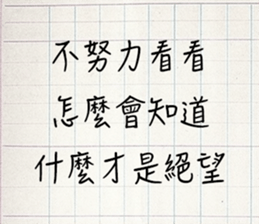 不努力看看
怎麼會知道
什麼才是絕望